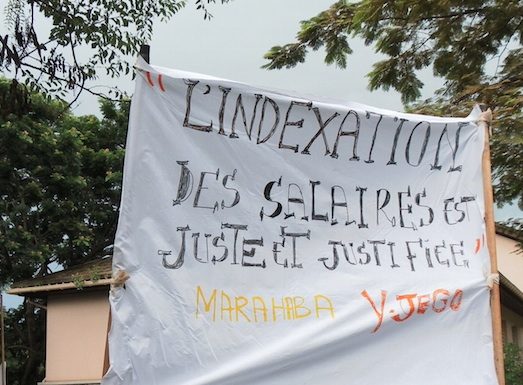 "L'INDEXATION
DES SALAIRES EST
JUSTE ET JUSTIFIEE"
MARAHABA Y-JEGO